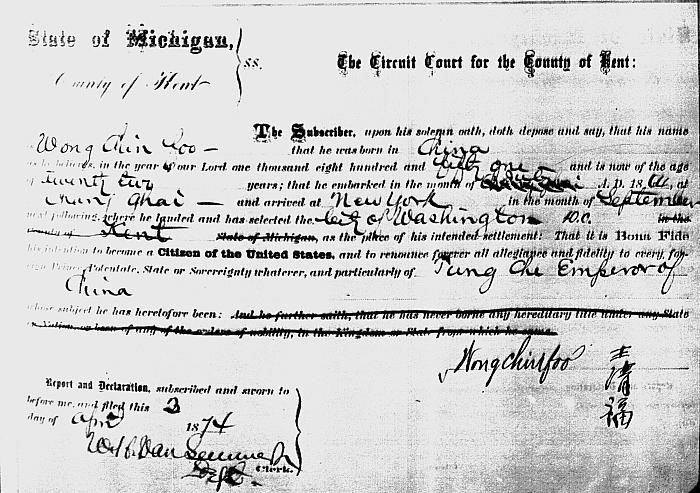 State of Michigan,
County of Kent
ss.
The Circuit Court for the County of Kent:
The Subscriber, upon his solemn oath, doth depose and say, that his name
Wong Chin Foo — that he was born in China
as he believes, in the year of our Lord one thousand eight hundred and fifty one and is now of the age
of twenty two years; that he embarked in the month of A. D. 18 at
Shang Ghai — and arrived at New York in the month of September
next following, where he landed and has selected the City of Washington D.C. in the
County of Kent State of Michigan, as the place of his intended settlement: That it is Bona Fide
his intention to become a Citizen of the United States, and to renounce forever all allegiance and fidelity to every, for-
eign Prince, Potentate, State or Sovereignty whatever, and particularly of Tung Che Emperor of
China
whose subject he has heretofore been: And he further saith, that he has never borne any hereditary title under any State
or Nation, or been of any of the orders of nobility, in the Kingdom or State from which he came
Wong Chin Foo
王清福
Report and Declaration, subscribed and sworn to
before me, and filed this 3
day of April 1874
W. H. Van
Clerk.
Dept.